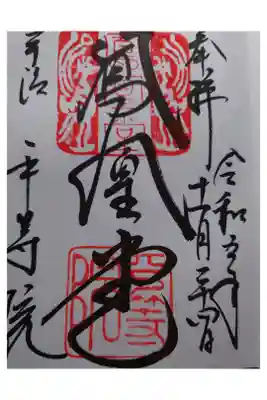 奉拝
令和五年
十一月二十四日
鳳凰堂
宇治
平等院